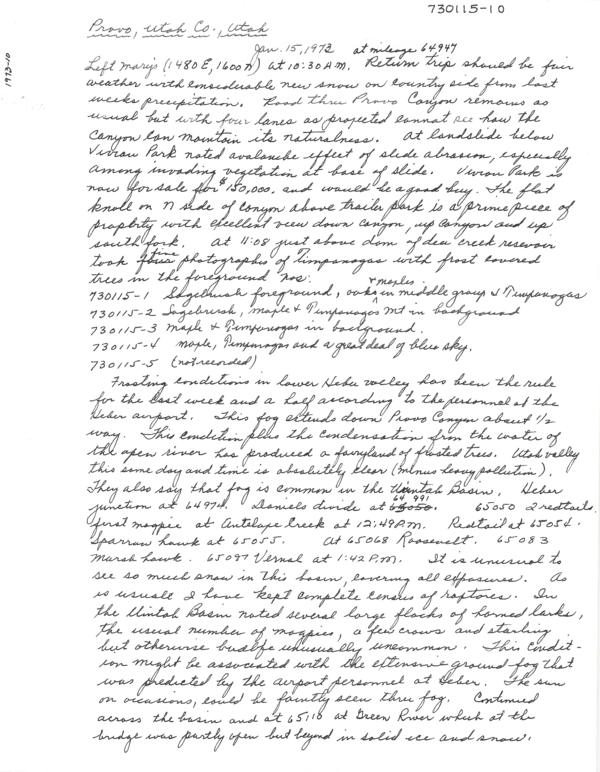 730115-10
1973-10
Provo, Utah Co., Utah
Jan. 15, 1973 at mileage 64947
Left Mary's (1480 E, 1600 N) at 10:30 A.M. Return trip should be fair
weather with considerable new snow on country side from last
weeks precipitation. Road thru Provo Canyon remains as
usual but with four lanes as projected cannot see how the
Canyon can maintain its naturalness. At landslide below
Vivian Park noted avalanche effect of slide abrasion, especially
among invading vegetation at base of slide. Vivian Park is
now for sale for $150,000. and would be a good buy. The flat
knoll on N side of canyon above trailer park is a prime piece of
property with excellent view down canyon, up canyon and up
south fork. At 11:08 just above dam of deer creek resevoir
took five photographs of Timpanogas with frost covered
trees in the foreground Nos.
730115-1 Sagebrush foreground, oaks + maples in middle group & Timpanogas
730115-2 Sagebrush, maple & Timpanogas Mt in background
730115-3 Maple & Timpanogas in background.
730115-4 maple, Timpanogas and a great deal of blue sky.
730115-5 (not recorded)
Frosting conditions in lower Heber valley has been the rule
for the last week and a half according to the personnel at the
Heber airport. This fog extends down Provo Canyon about 1/2
way. This condition plus the condensation from the water of
the open river has produced a fairyland of frosted trees. Utah valley
this same day and time is absolutely clear (minus heavy pollution).
They also say that fog is common in the Uintah Basin. Heber
junction at 64974. Daniels divide at 64991. 65050 2 redtails.
first magpie at Antelope Creek at 12:49 P.M. Redtail at 65054.
Sparrow hawk at 65055. At 65068 Roosevelt. 65083
marsh hawk. 65097 Vernal at 1:42 P.M. It is unusual to
see so much snow in this basin, covering all exposures. As
is usual I have kept complete census of raptores. In
the Uintah Basin noted several large flocks of horned larks,
the usual number of magpies, a few crows and starling
but otherwise birdlife unusually uncommon. This condit-
ion might be associated with the extensive ground fog that
was predicted by the airport personnel at Heber. The sun
on occasions, could be faintly seen thru fog. Continued
across the basin and at 65110 at Green River which at the
bridge was partly open but beyond in solid ice and snow.